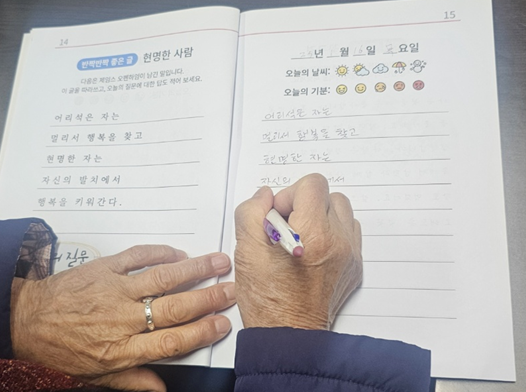 14
반짝반짝 좋은 글 현명한 사람
다음은 제임스 오펜하임이 남긴 말입니다.
이 글을 따라쓰고, 오늘의 질문에 대한 답도 적어 보세요.
어리석은 자는
멀리서 행복을 찾고
현명한 자는
자신의 발치에서
행복을 키워간다.
질문
15
년 월 16일 요일
오늘의 날씨:
오늘의 기분:
어리석은 자는
멀리서 행복을 찾고
현명한 자는
자신의 에서